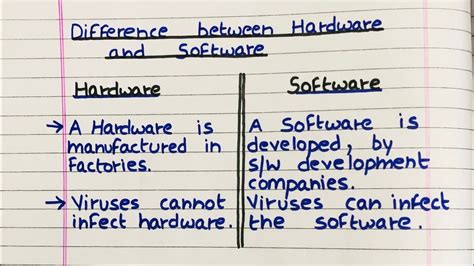 Difference between Hardware
and Software
Hardware
→ A Hardware is
manufactured in
Factories.
→ Viruses cannot
infect hardware.
Software
A Software is
developed, by
S/W development
companies.
Viruses can infect
the software.